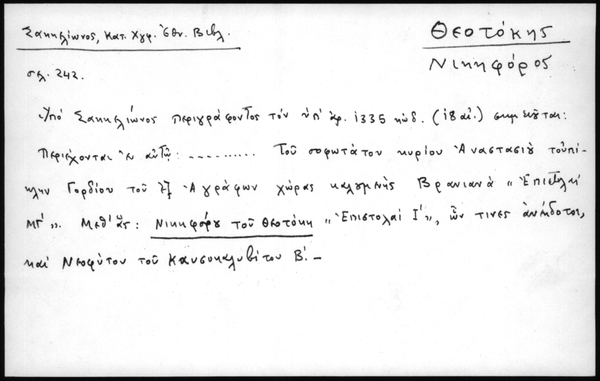 Σακκελίωνος, Κατ. Χγφ. Ἐθν. Βιβλ.
ΘΕΟΤΌΚΗΣ
ΝΙΚΗΦΌΡΟΣ
σελ. 242.
Ὑπὸ Σακκελίωνος περιγράφοντος τὸν ὑπ' ἀρ. 1335 κώδ. (18 αἰ.) σημειοῦται:
Περιέχονται ἐν αὐτῷ: .......... Τοῦ σοφωτάτου κυρίου Ἀναστασίου τοὐπί-
κλην Γορδίου τοῦ ἐξ Ἀγράφων χώρας καλουμένης Βρανιανὰ "Ἐπιστολαὶ
ΜΓ'". Μεθ' ἅς: Νικηφόρου τοῦ Θεοτόκη "Ἐπιστολαὶ Ι'", ὧν τινες ἀνέκδοτοι,
καὶ Νεοφύτου τοῦ Καυσοκαλυβίτου Β'. –